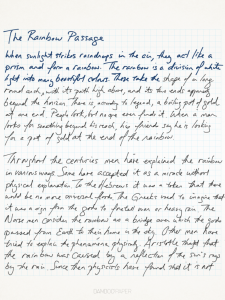 The Rainbow Passage
When sunlight strikes raindrops in the air, they act like a
prism and form a rainbow. The rainbow is a division of white
light into many beautiful colours. These take the shape of a long
round arch, with its path high above, and its two ends apparently
beyond the horizon. There is, according to legend, a boiling pot of gold
at one end. People look, but no one ever finds it. When a man
looks for something beyond his reach, his friends say he is looking
for a pot of gold at the end of the rainbow.
Throughout the centuries men have explained the rainbow
in various ways. Some have accepted it as a miracle without
physical explanation. To the Hebrews it was a token that there
would be no more universal floods. The Greeks used to imagine that
it was a sign from the gods to foretell war or heavy rain. The
Norse men considered the rainbow as a bridge over which the gods
passed from Earth to their home in the sky. Other men have
tried to explain the phenomena physically. Aristotle thought that
the rainbow was caused by a reflection of the sun's rays
by the rain. Since then physicists have found that it is not